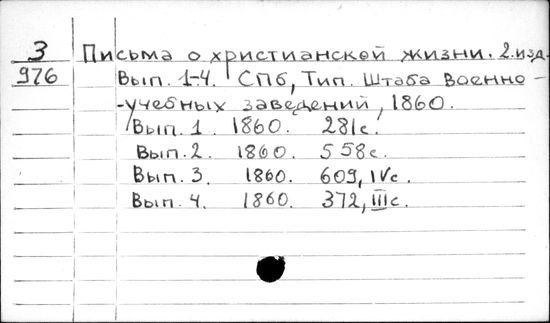 З Письма о христианской жизни. 2. изд.
976 Вып. 1-4. СПб, Тип. Штаба Военно-
-учебных заведений, 1860.
Вып. 1 1860. 281с.
Вып. 2. 1860. 558с.
Вып. 3 1860. 609, IVс.
Вып. 4. 1860. 372, IIIс.